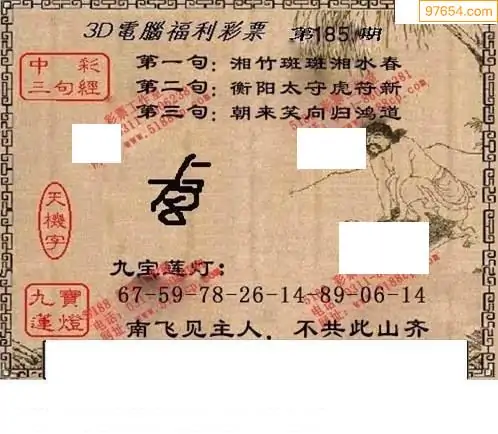 97654.com
3D電腦福利彩票 第185期
中彩三句經
第一句：湘竹斑斑湘水春
第二句：衡阳太守虎符新
第三句：朝来笑向归鸿道
天機字
九宝莲灯：
67-59-78-26-14-89-06-14
九寶蓮燈
南飞见主人，不共此山齐